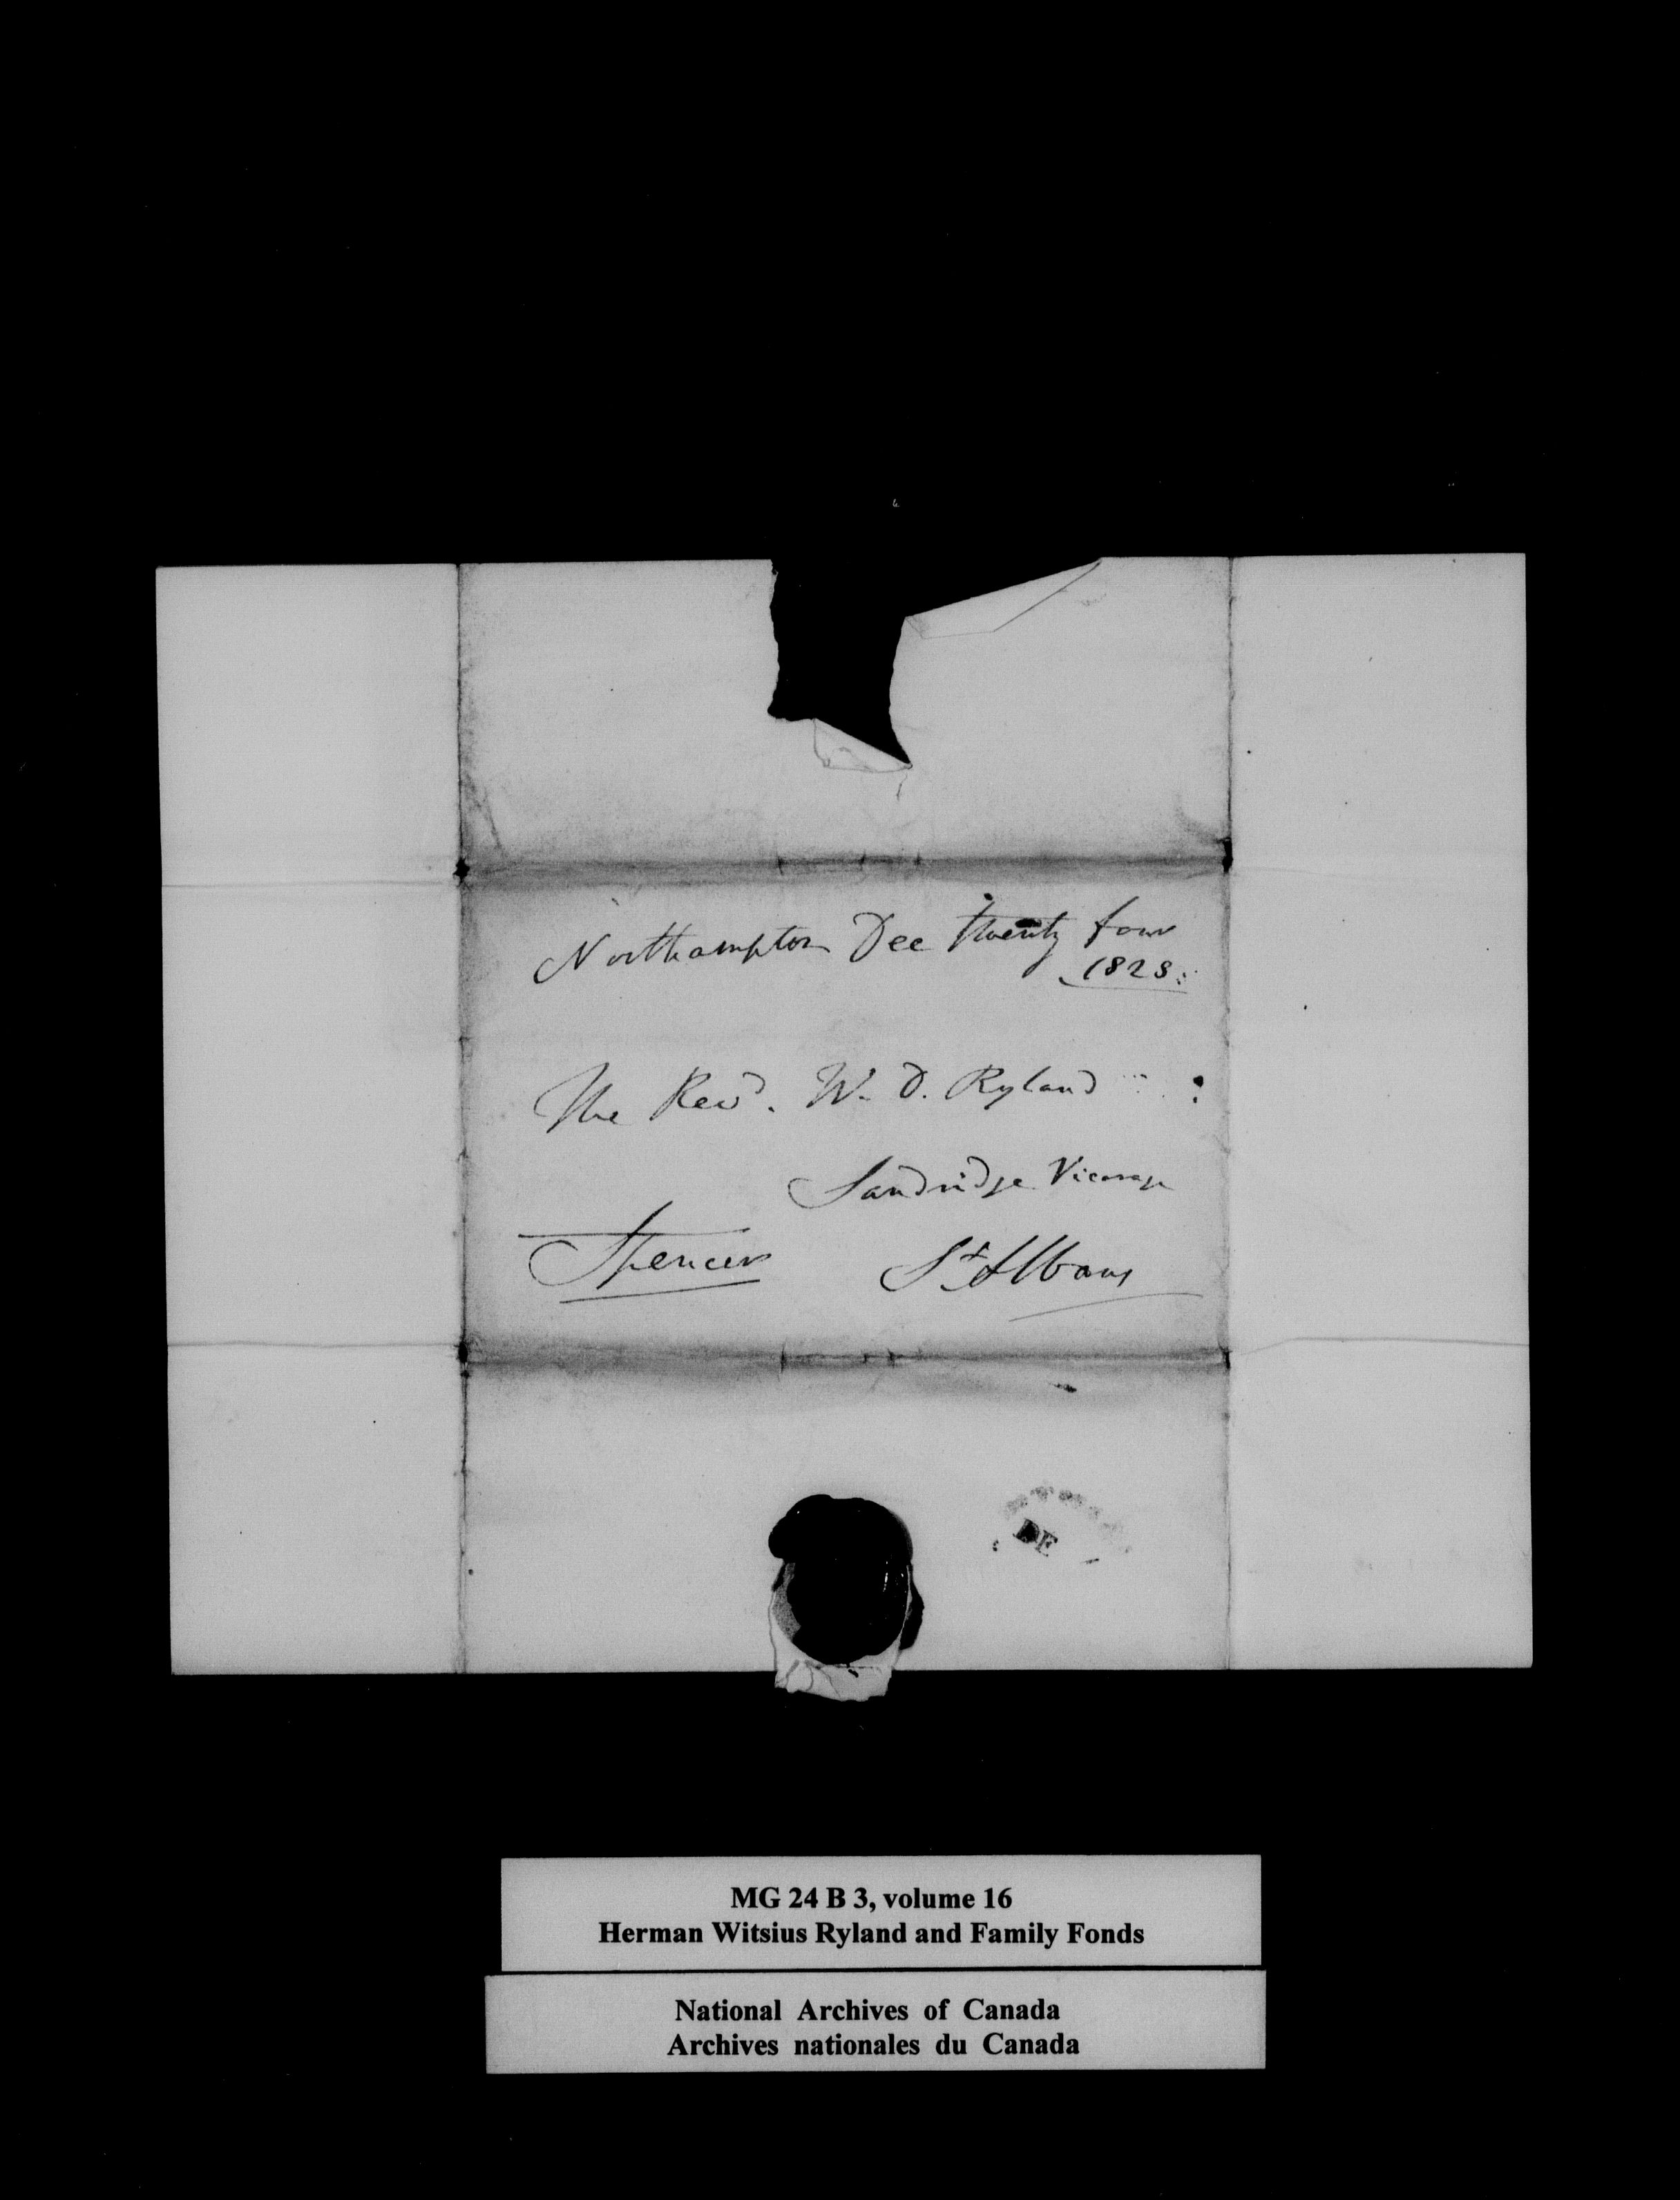 Northampton Dec twenty four
1828.
The Revd. W. D. Ryland
Sandridge Vicarage
Spencer St Albans
DE
MG 24 B 3, volume 16
Herman Witsius Ryland and Family Fonds
National Archives of Canada
Archives nationales du Canada